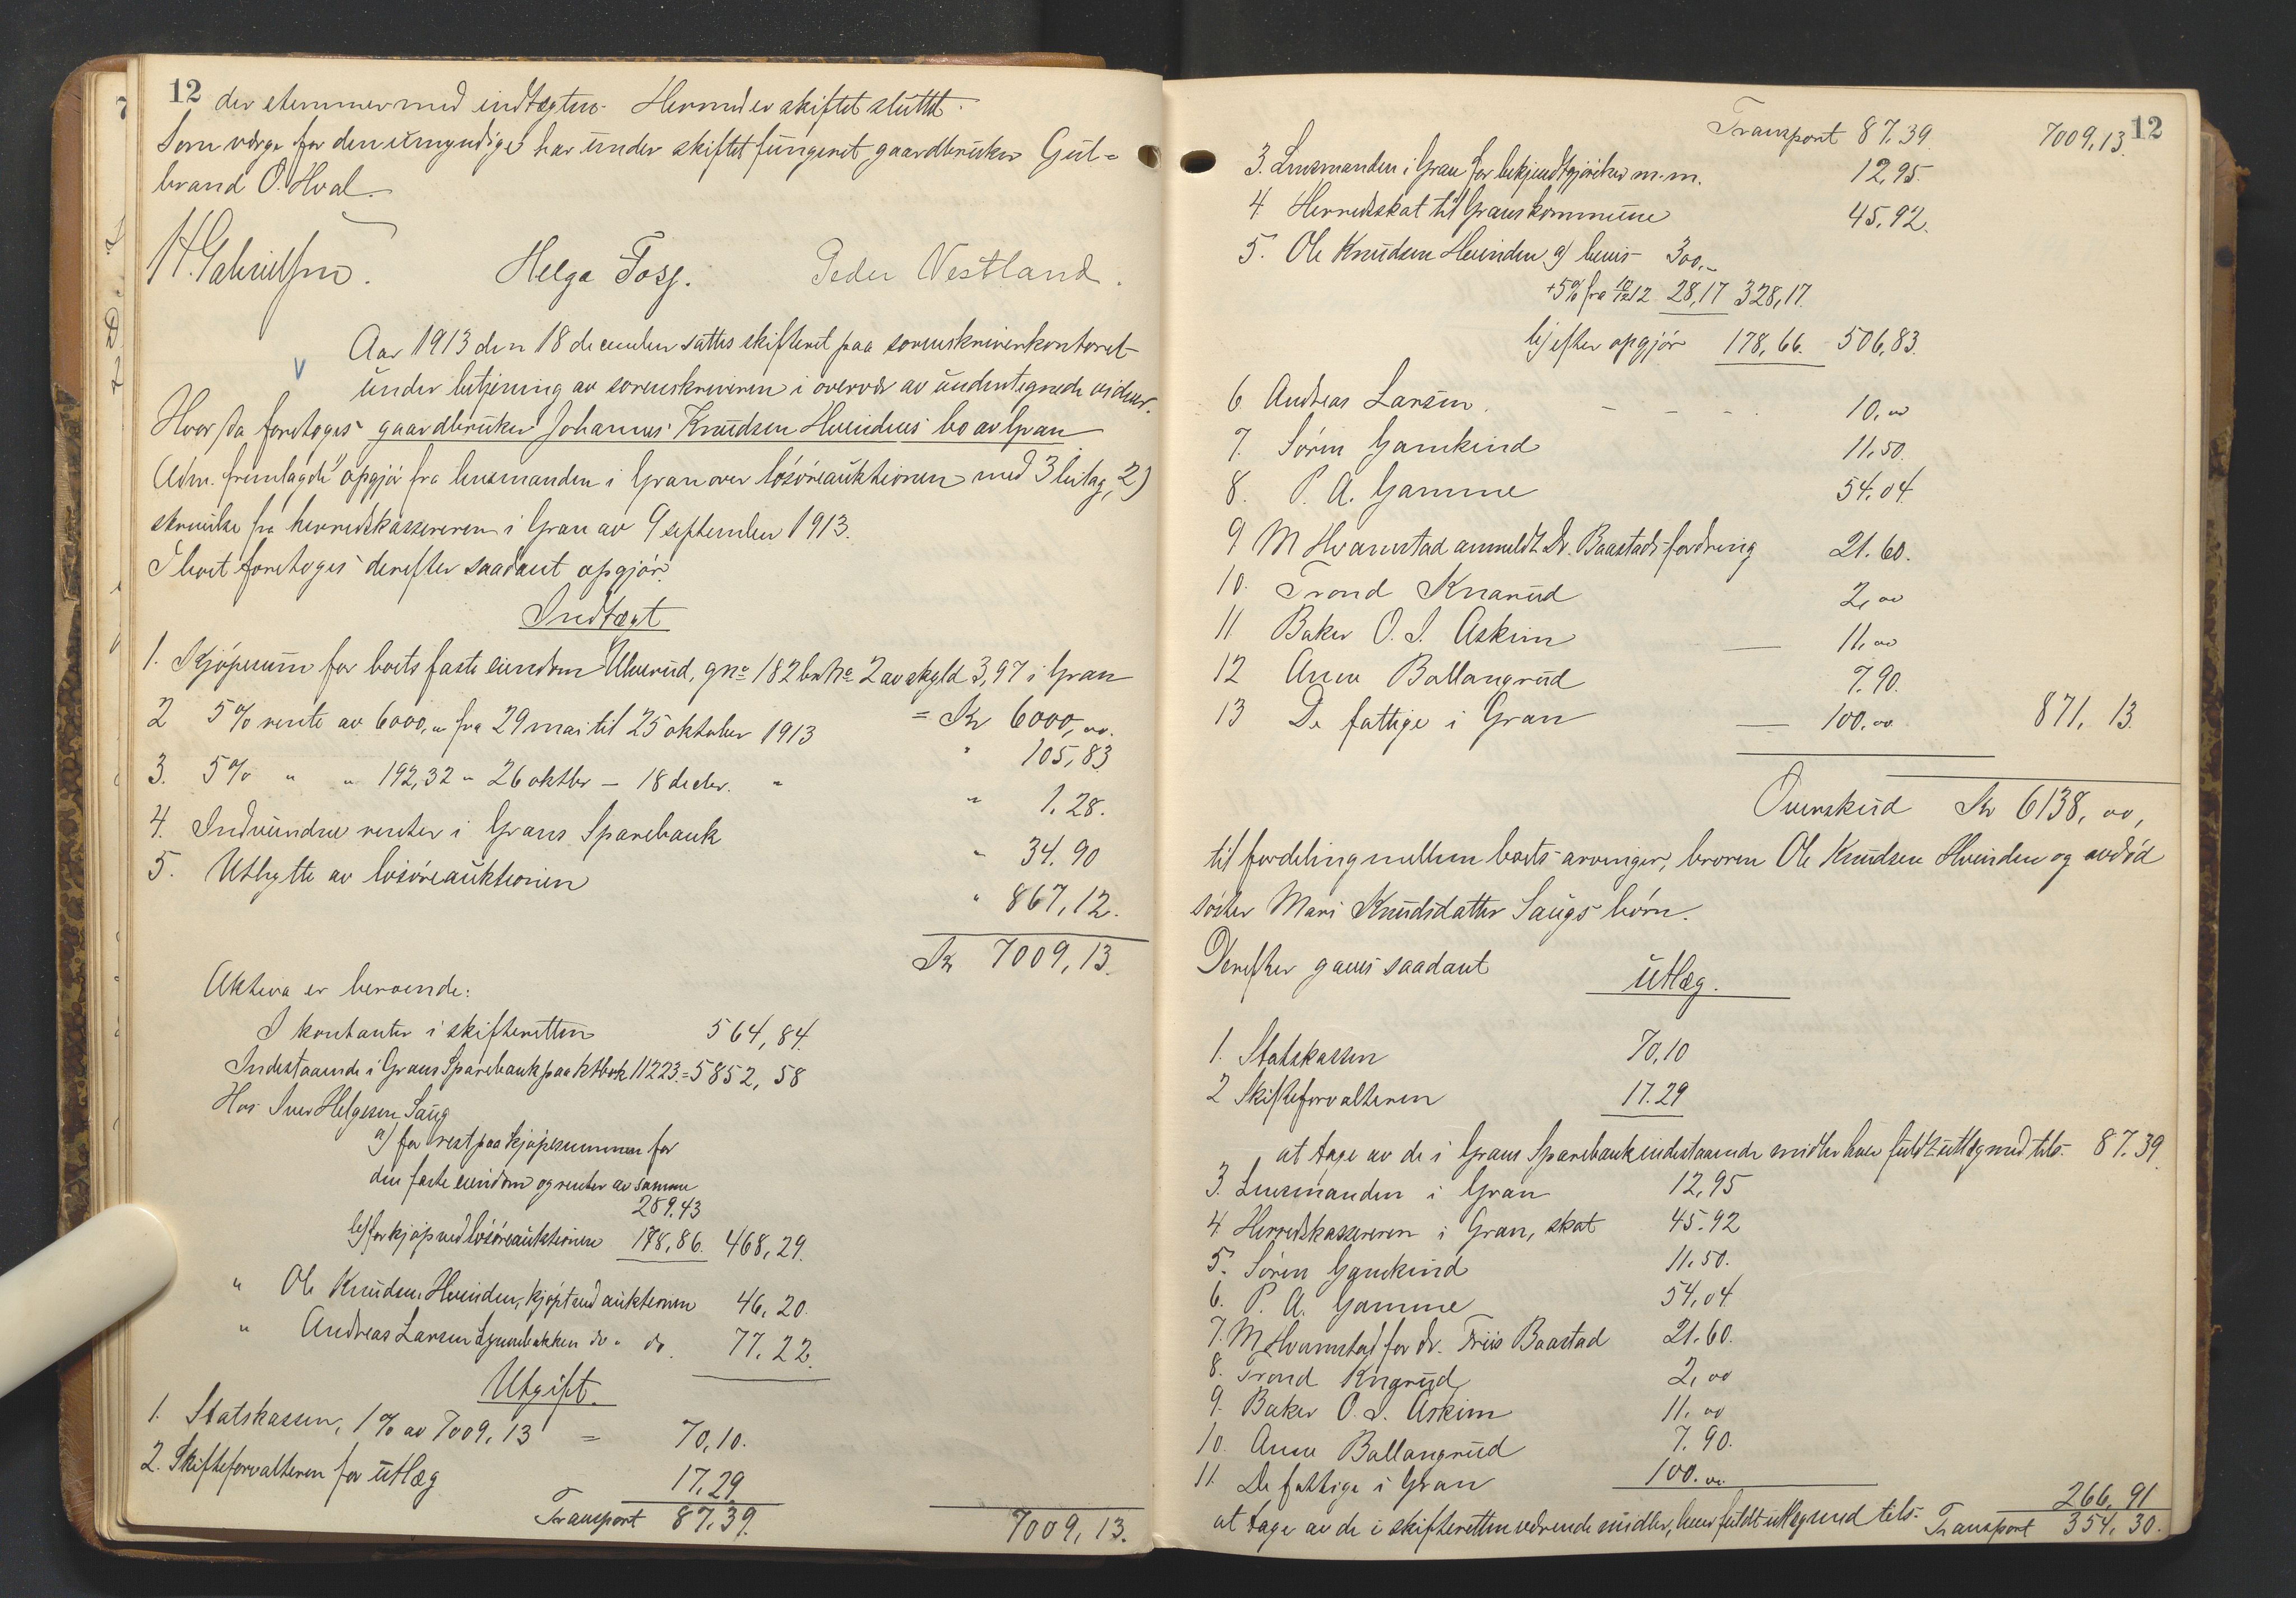 12 der stemmer med indtægten. Hermed er skiftet sluttet.
Som verge for den umyndige har under skiftet fungeret gaardbruker Gul-
brand O. Hval.
H. Gabrielsen. Helga Foss. Peder Westland.
Aar 1913 den 18 december sattes skifteret paa sorenskriverkontoret
under betjening av sorenskriveren i overvær av undertegnede vidner.
Hvor da foretoges gaardbruker Johannes Knudsen Hvindens bo av Gran
Adm. fremlagde 1) opgjør fra lensmanden i Gran over løsøreauktionen med 3 bilag, 2)
skrivelse fra herredskassereren i Gran av 9 september 1913.
I boet foretoges derefter saadant opgjør.
Indtægt
1. Kjøpesum for boets faste eiendom Ulverud, gno 182 bno 2 av skyld 3,97 i Gran
= Kr 6000,00.
2 5% rente av 6000,00 fra 29 mai til 25 oktober 1913 " 105,83
3. 5% " " 192,32 " 26 oktbr – 18 decbr. " " 1.28.
4. Indvundne renter i Grans Sparebank " 34.90
5. Utbytte av løsøreauktionen " 867,12.
Kr 7009,13.
Aktiva er beroende:
I kontanter i skifteretten 564,84.
Indestaaende i Grans Sparebank paa ktbok 11223. = 5852,58
Hos Iver Helgesen Saug
a) for rest paa kjøpesummen for
den faste eiendom og renter av samme
289.43
b) for kjøp ved løsøreauktionen 178,86. 468,29.
" Ole Knudsen Hvinden, kjøpt ved auktionen 46,20.
" Andreas Larsen do " do 77.22.
Utgift.
1. Statskassen, 1% av 7009,13 = 70,10.
2. Skifteforvalteren for utlæg 17,29
Transport 87.39. 7009,13.
12
Transport 87.39. 7009,13.
3. Lensmanden i Gran for bekjendtgjørelser m.m. 12,95.
4 Herredsskat til Grans kommune 45,92.
5. Ole Knudsen Hvinden a) bevis 300,-
+5% fra 10/12 12 28,17 328,17.
b) efter opgjør 178,66. 506,83.
6 Andreas Larsen. – – – 10,00
7. Søren Gamkind 11,50.
8. P. A. Gamme 54,04.
9 M Hvamstad anmeldt Dr. Baastads fordring 21.60.
10. Trond Knarud 2,00
11. Baker O. I. Askim — 11,00
12 Anne Ballangrud 7.90.
13 De fattige i Gran — 100,00 871,13.
Overskud Kr 6138,00,
til fordeling mellem boets arvinger, broren Ole Knudsen Hvinden og avdød
søster Mari Knudsdatter Saugs børn.
Derefter gaves saadant
Utlæg.
1. Statskassen 70,10
2 Skifteforvalteren 17.29
at tage av de i Grans Sparebank indestaaende midler have fuldt utlæg med tils. 87.39.
3. Lensmanden i Gran 12,95
4 Herredskassereren i Gran, skat 45.92
5. Søren Gamkind 11.50.
6. P. A. Gamme 54,04
7. M Hvamstad for dr. Friis Baastad 21.60.
8. Trond Knarud 2,00
9. Baker O. I. Askim 11.00
10. Anne Ballangrud 7.90.
11. De fattige i Gran 100.00 266,91
at tage av de i skifteretten værende midler, have fuldt utlæg med tils. Transport 354,30.